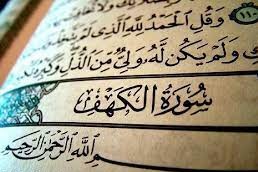 ١١٠ وَقُلِ ٱلْحَمْدُ لِلَّهِ ٱلَّذِى لَمْ
وَلَمْ يَكُن لَّهُۥ وَلِىٌّ مِّنَ ٱلذُّلِّ وَكَبِّرْهُ
سُورَةُ الكَهْفِ
ٱللَّهِ ٱلرَّحْمَٰنِ ٱلرَّحِيمِ